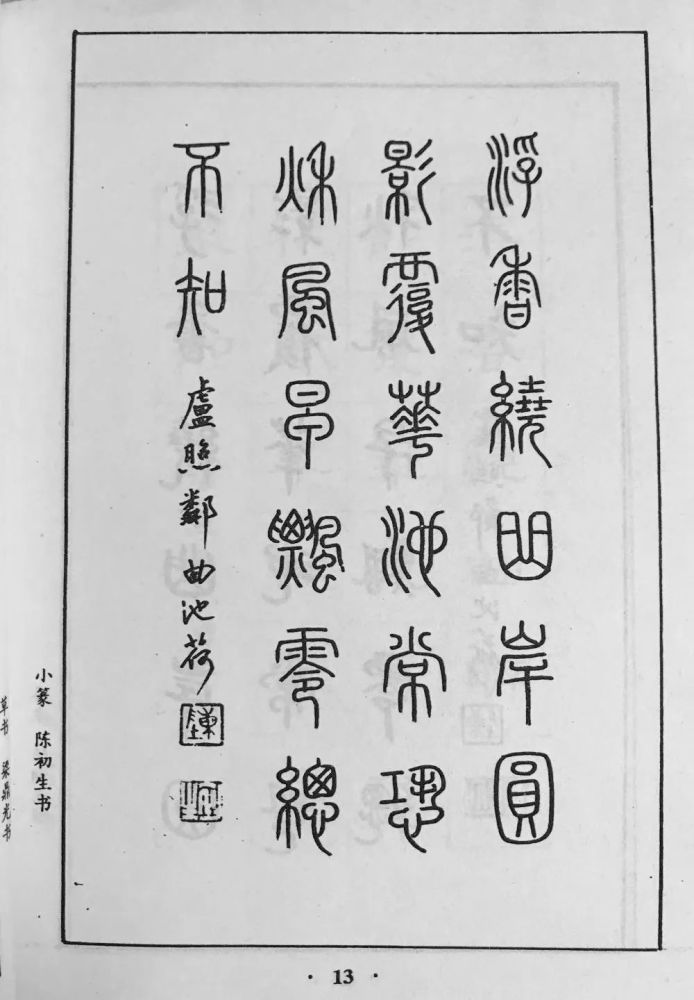 浮香繞曲岸圓
影覆華池常恐
秋風早飄零總
不知 盧照鄰曲池荷
陳
小篆 陈初生书
草书 梁鼎光书
· 13 ·